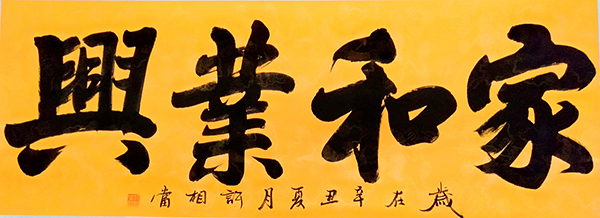 家和業興
歲在辛丑夏月許相當